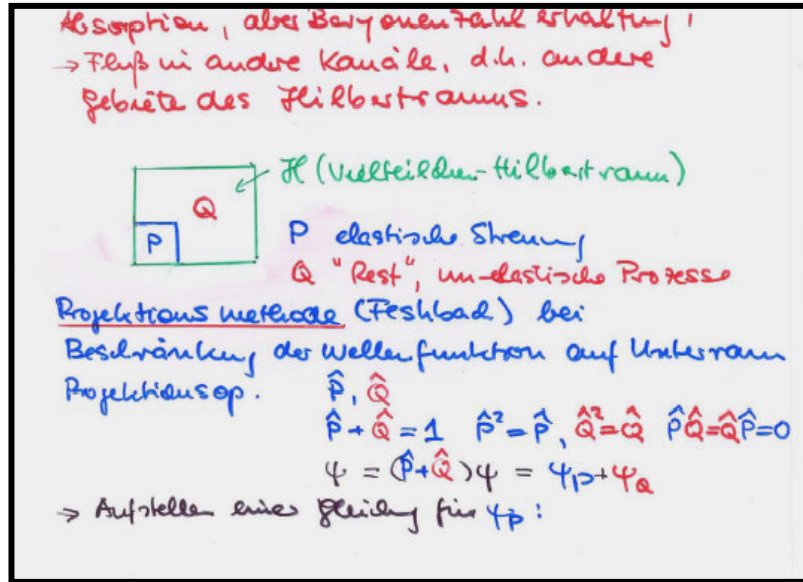 Absorption, aber Baryonenzahlerhaltung,
→ Fluß in andre Kanäle, d.h. andere
Gebiete des Hilbertraums.
H (Vielteilchen-Hilbertraum)
Q
P
P elastische Streuung
Q "Rest", un-elastische Prozesse
Projektionsmethode (Feshbach) bei
Beschränkung der Wellenfunktion auf Unterraum
Projektionsop. P̂, Q̂
P̂ + Q̂ = 1 P̂² = P̂, Q̂² = Q̂ P̂Q̂ = Q̂P̂ = 0
ψ = (P̂ + Q̂)ψ = ψ_P + ψ_Q
→ Aufstellen einer Gleichung für ψ_P :